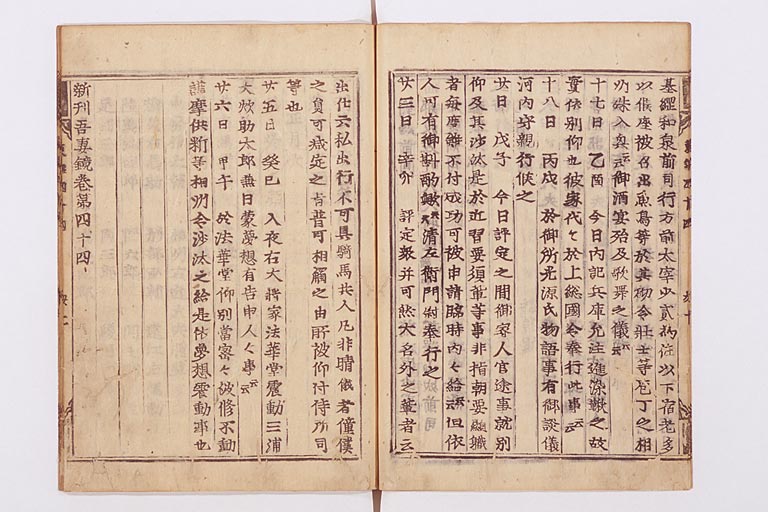 基經和泉前司行方前太宰少貳為佐以下宿老多
以候座被召出魚鳥等於其物令壯士等庖丁之相
州殊入興云云御酒宴殆及歌舞之儀云云
十七日 乙酉 今日内記兵庫允
實依別仰也彼家代々於上総國令奉行此事云云
十八日 丙戌 於御所光源氏物語事有御談儀
河内守親行候之
廿日 戊子 今日評定之間御家人官途事就別
仰及其沙汰是於近習要須輩等事非指朝要顯職
者毎度雖不付成功可被申請臨時内々給云云但依
人可有御斟酌歟云云清左衛門尉奉行之
廿三日 辛卯 評定衆并可然大名外之輩者云
出仕云私出行不可具騎馬共人凡非晴儀者僮僕
之員可減定之旨普可相觸之由所被仰付侍所司
等也
廿五日 癸巳 入夜右大將家法華堂震動三浦
大炊助太郎兼日蒙夢想有告申人々事云云
廿六日 甲午 於法華堂仰別當密々被修不動
護摩供新等相州令沙汰之給是依夢想震動事也
新刊吾妻鏡卷第四十四